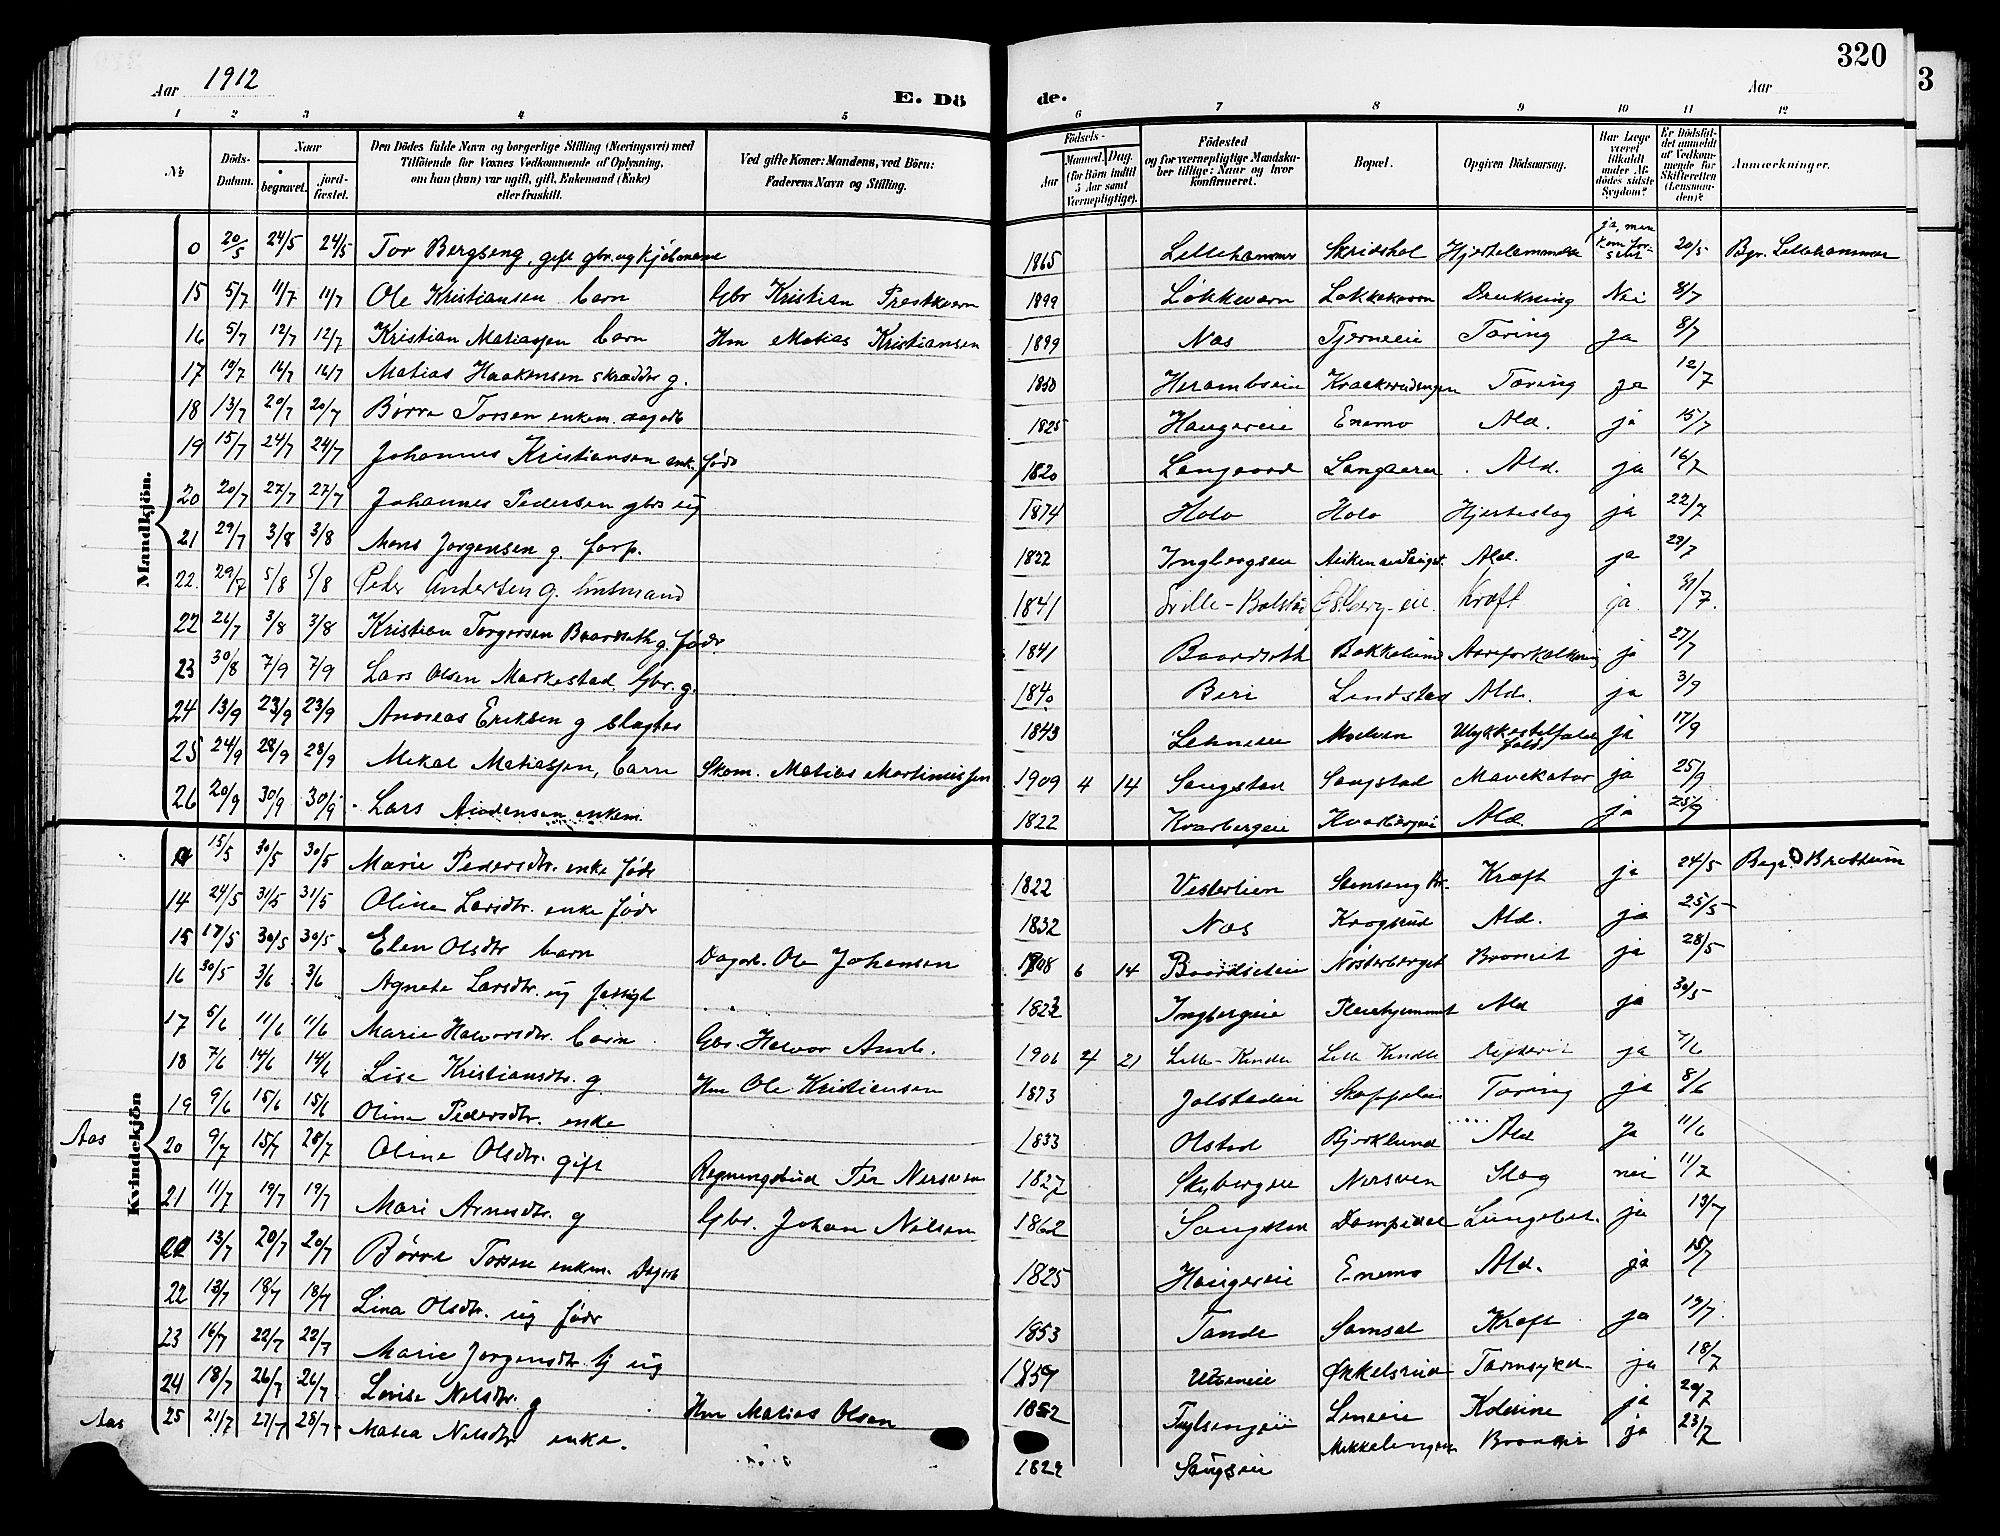 320
3
Aar 1912
E. Dö
de.
Aar
1 2 3 4 5 6 7 8 9 10 11 12
No
Döds-Datum.
Naar
begravet.
jordfæstet.
Den Dödes fulde Navn og borgerlige Stilling (Næringsvei) med
Tilföiende for Voxnes Vedkommende af Oplysning,
om han (hun) var ugift, gift, Enkemand (Enke)
eller fraskilt.
Ved gifte Koner: Mandens, ved Börn:
Faderens Navn og Stilling.
Födsels-
Aar
Maaned. Dag.
(for Börn indtil 5 Aar samt Værnepligtige).
Födested
og for værnepligtige Mandskaber tillige: Naar og hvor konfirmeret.
Bopæl.
Opgiven Dödsaarsag.
Har Læge været tilkaldt under Afdödes sidste Sygdom?
Er Dödsfaldet anmeldt af Vedkommende for Skifteretten (Lensmanden)?
Anmærkninger.
Mandkjön.
0 20/5 24/5 24/5 Tor Bergseng, gift gbr. og kjøbmann 1865 Lillehammer Skridshol Hjertelammelse ja, men kom for sent 20/5 Bgr. Lillehammer
15 5/7 11/7 11/7 Ole Kristiansen barn Gbr Kristian Prestkvern 1899 Løkkvarn Løkkekvern Drukning Nei 8/7
16 5/7 12/7 12/7 Kristian Matiassen barn Hm Matias Kristiansen 1899 Næs Tjerneeie Tæring ja 8/7
17 16/7 16/7 Matias Haakensen skrædder g. 1850 Herambseie Tæring ja 12/7
18 13/7 20/7 20/7 Børre Torsen enkem. dagarb 1825 Haugereie Enemo Ald. ja 15/7
19 15/7 24/7 24/7 Johannes Kristiansen enk. føds 1820 Langaard Ald. ja 16/7
20 20/7 27/7 27/7 Johannes Pedersen gbrs ug 1874 Holo Holo Hjerteslag ja 22/7
21 29/7 3/8 3/8 Mons Jørgensen g. forp. 1822 Ingbergseie Ald. ja 29/7
22. 29/7 5/8 5/8 Peder Andersen g. husmand 1841 Lille-Bolstad Ostberg-eie. Kræft ja. 31/7.
22 26/7 3/8 3/8 Kristian Torgersen Baardseth g. føds. 1841 Baardseth Bakkelund Aareforkalkning ja 27/7
23 30/8 7/9 7/9 Lars Olsen Markestad Gbr. g. 1840 Biri Lindstad Ald. ja 3/9
24 13/9 23/9 23/9 Andreas Eriksen g slagter 1843 Lehneeie Moelven Ulykkestilfælde fald ja 17/9
25 24/9 28/9 28/9 Mikal Matiassen, barn Skom. Matias Martinussen 1909 4 14 Saugstad Saugstad Mavekatar ja 25/9
26 20/9 30/9 30/9 Lars Amundensen enkem. 1822 Kvarbergeie Kvarbergeie Ald. ja 25/9
Kvindekjön
0 15/5 30/5 30/5 Marie Pedersdtr. enke føds 1822 Vesterlien Stenseng Br. Kræft ja 24/5 Begr. Brøttum
14 24/5 31/5 31/5 Oline Larsdtr. enke føds 1832 Næs Krogsrud Ald. ja 25/5
15 17/5 30/5 30/5 Elen Olsdtr barn Dagarb. Ole Johansen 1908 6 14 Baardseteie Nøsterberget Bronchit ja 28/5
16 30/5 3/6 3/6 Agnete Larsdtr. ug fattigl 1823 Ingbergeie Pleiehjemmet Ald ja 30/5
17 5/6 11/6 11/6 Marie Halvorsdtr. barn Gbr. Halvor Amb. 1906 4 21 Lille-Kindli Lille Kindli ja 7/6
18 7/6 14/6 14/6 Lise Kristiansdtr. g Hm Ole Kristiansen 1873 Jølstadeie Tæring ja 8/6
19 9/6 15/6 15/6 Oline Pedersdtr. enke 1833 Olstad Bjørklund Ald ja 11/6
Aas 20 9/7 15/7 28/7 Oline Olsdtr. gift Regningsbud Per Nersveen 1827 Skybergeie Nersven Slag nei 11/7
21 11/7 19/7 19/7 Mari Arnesdtr. g Gbr. Johan Nilsen 1862 Saugstad Lungebet. ja 13/7
22 13/7 20/7 20/7 Børre Torsen enkem. Dagarb 1825 Haugereie Enemo Ald. ja 15/7
22 13/7 18/7 18/7 Lina Olsdtr. ug føds 1853 Tande Samsal Kræft ja 17/7
23 16/7 22/7 22/7 Marie Jørgensdtr. tj ug 1859 Utseneie Økkelsrud Tarmsykd. ja 18/7
24 18/7 26/7 26/7 Lovise Nilsdtr. g Hm Matias Olsen 1852 Lineeie Kolerine ja 20/7
Aas 25 21/7 27/7 28/7 Matea Nilsdtr enke. 1829 Saugseie Mekkelengen ja 23/7